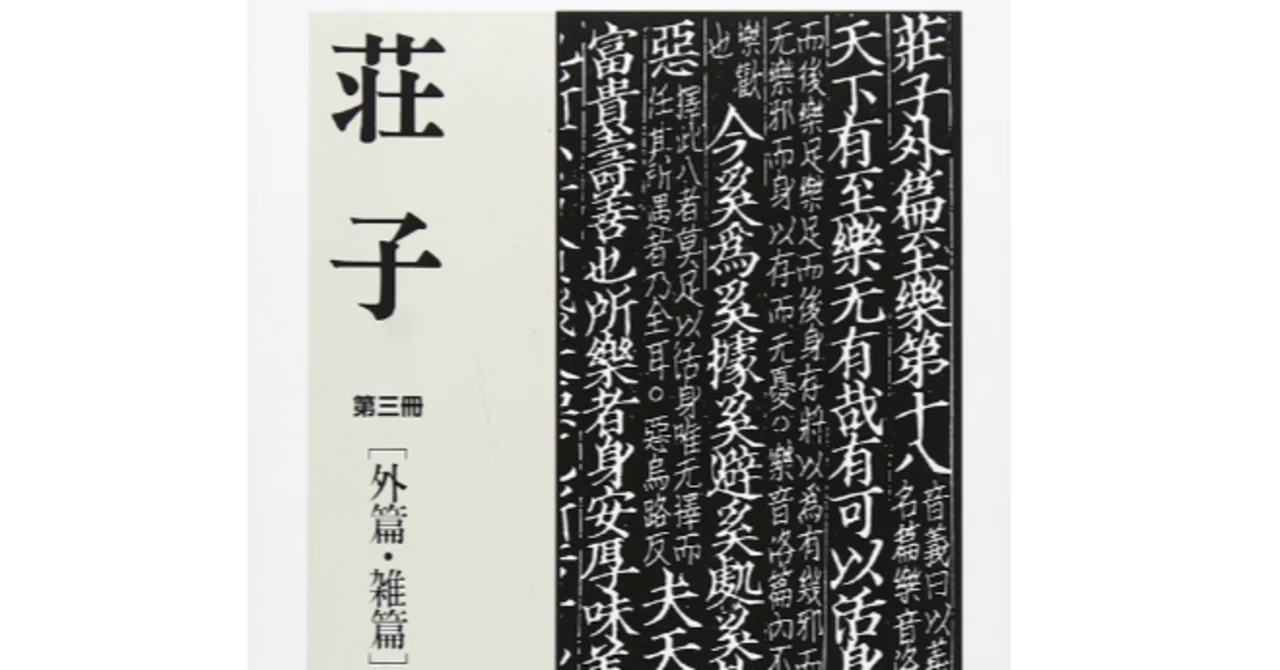 荘子
第三冊
[外篇・雑篇]
莊子外篇至樂第十八
音義曰以義
名篇樂音洛
天下有至樂无有哉有可以活身
而後樂足樂足而後身存將以為有幾邪而
无樂邪而身以存而无憂○樂音洛篇內不
樂歡
也
今奚為奚據奚避奚處奚
惡
擇此八者莫足以活身唯无擇而
任其所遇者乃全耳○惡烏路反
夫天
富貴壽善也所樂者身安厚味美